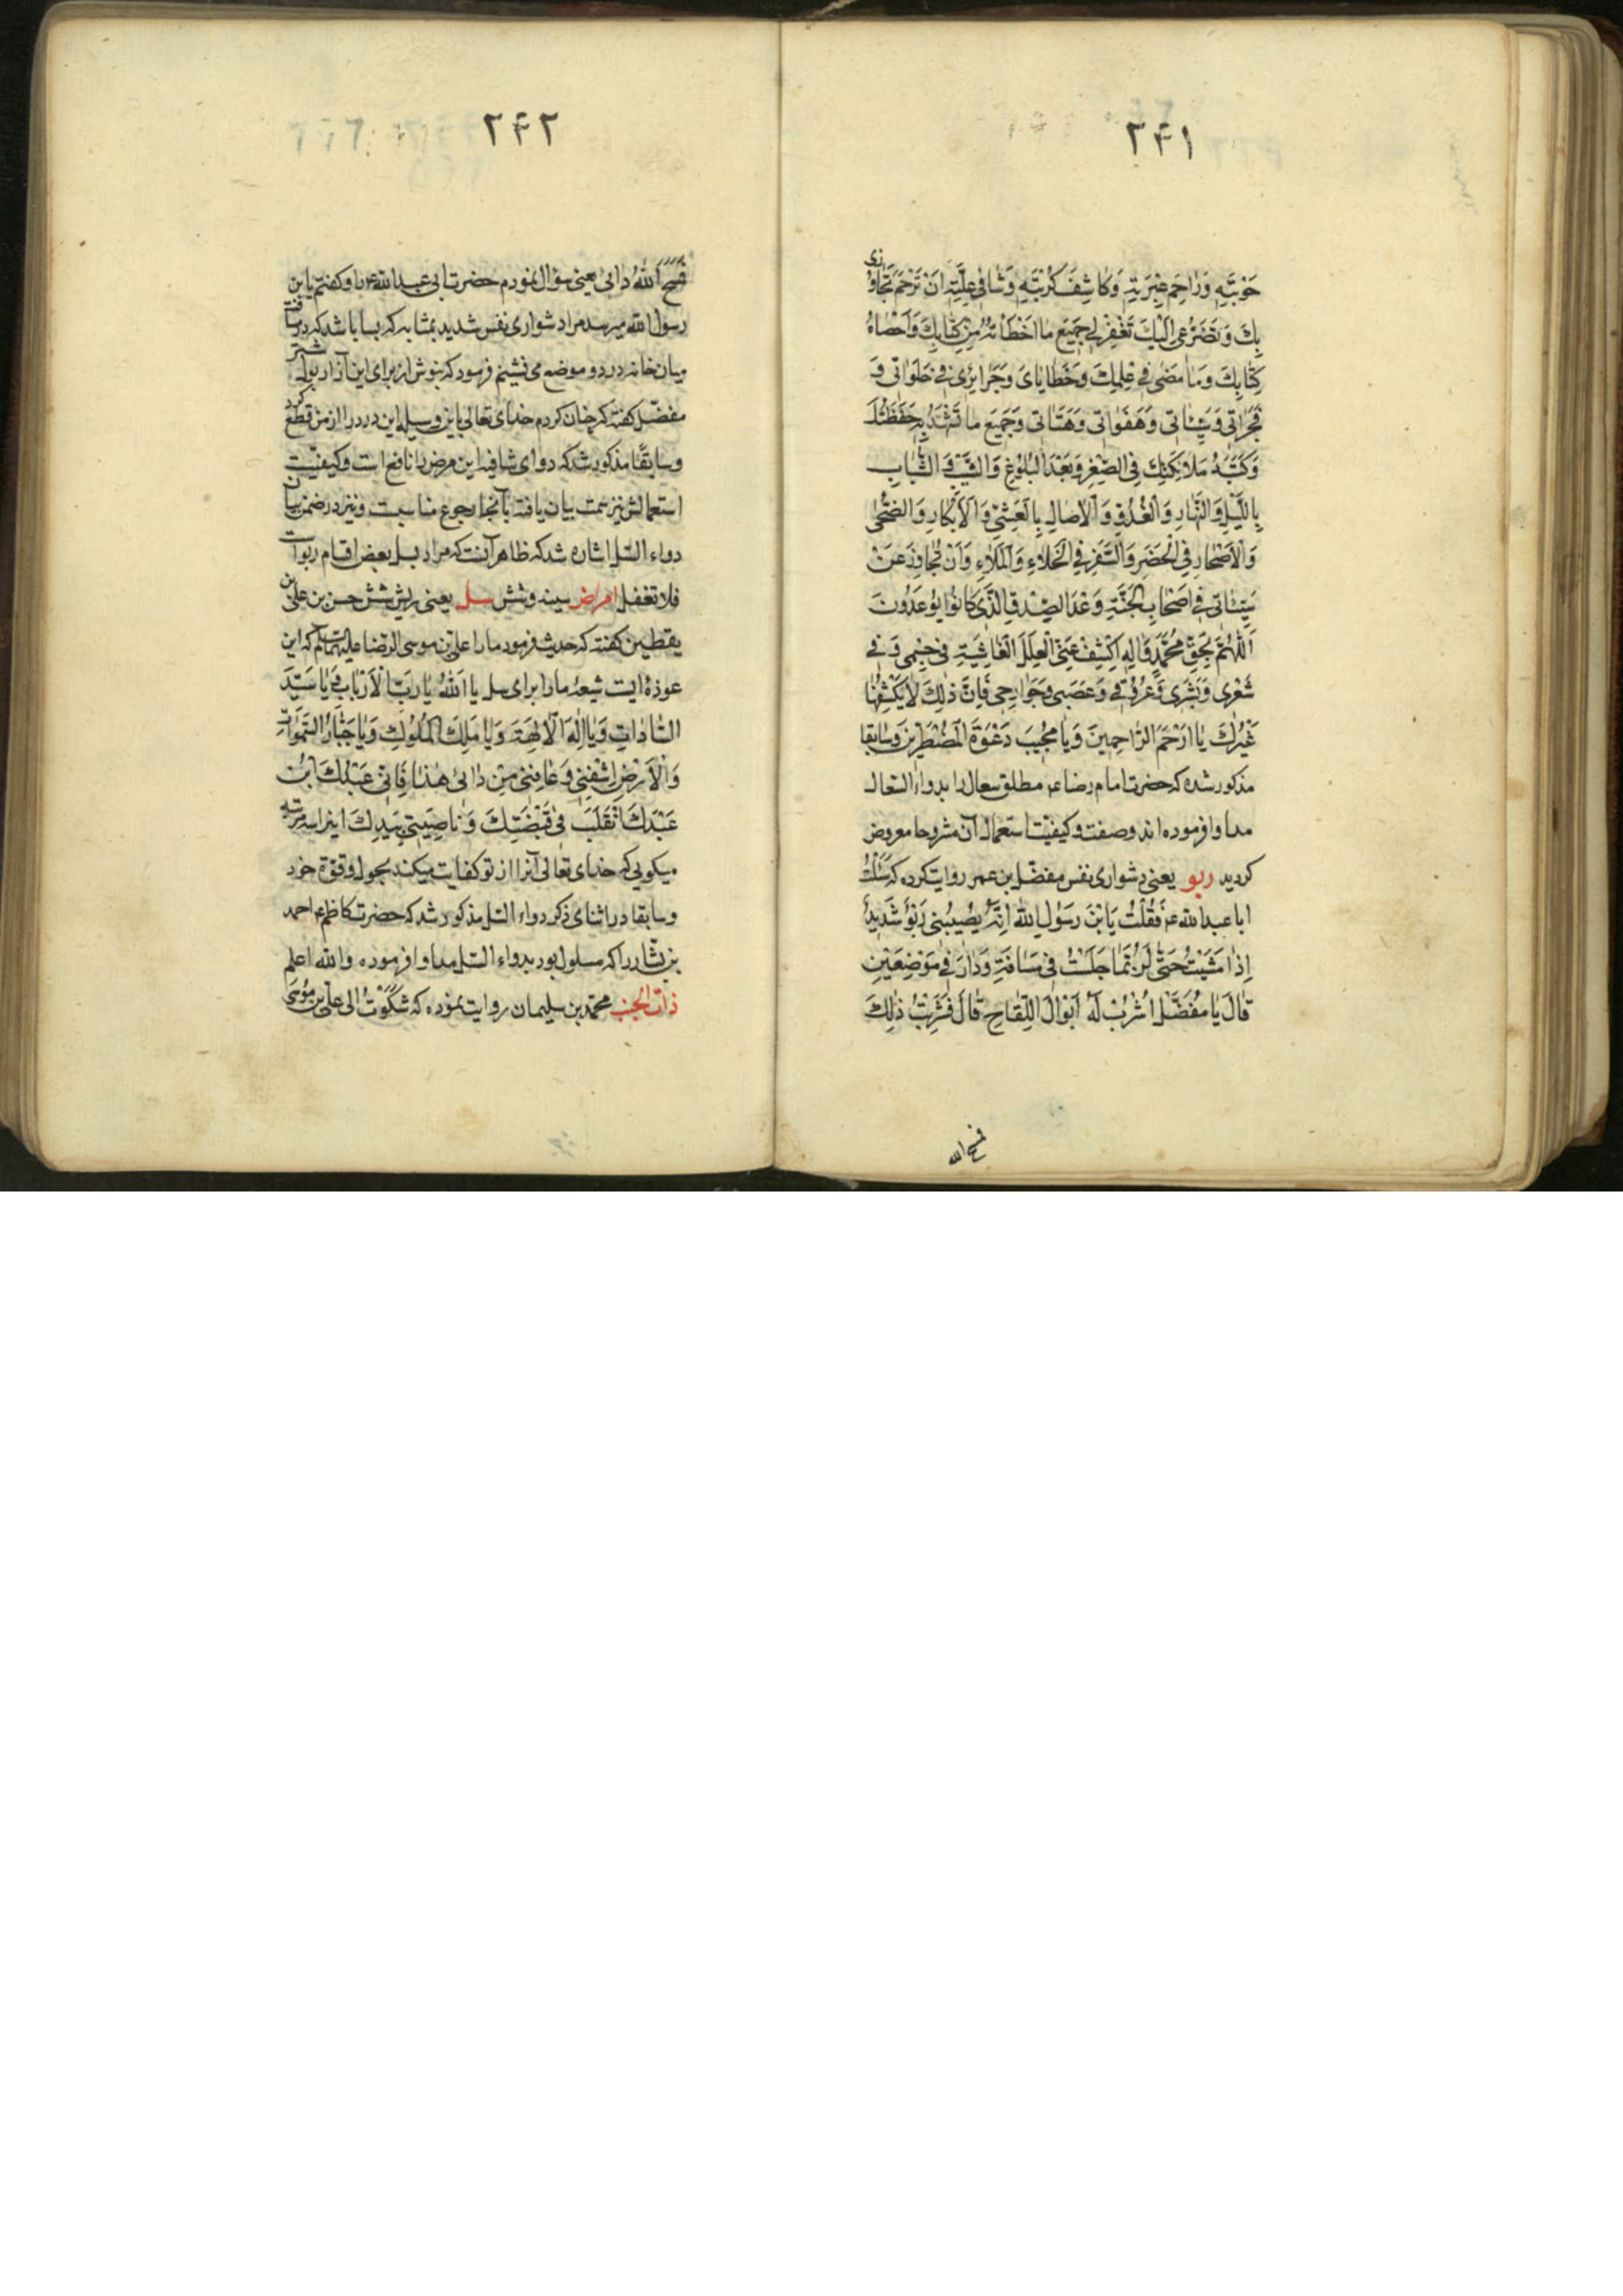 ۲۴۱
حَوْبَتِهِ وَرَاحِمَ عَبْرَتِهِ وَكَاشِفَ كُرْبَتِهِ وَشَافِيَ عِلَّتِهِ اَنْ تَرْحَمَ تَجَاوُزي
بِكَ وَتَضَرُّعى اِلَيْكَ تَغْفِرْلي جَميعَ ما اَخْطَاْتُهُ مِنْ كِتابِكَ وَاَحْصاهُ
كِتابُكَ وَمَا مَضى في عِلْمِكَ وَخَطايايَ وَجَرايِرى في خَلَواتى وَ
فَجَراتى وَسَيِّئاتى وَهَفَواتى وَهَنَاتى وَجَميعَ ما تَشْهَدُ بِهِ حَفَظَتُكَ
وَكَتَبَهُ مَلائِكَتُكَ فِى الصِّغَرِ وَبَعْدَ الْبُلُوغِ وَالشَّيْبِ وَالشَّبابِ
بِاللَّيْلِ وَالنَّهارِ وَالْغُدُوِّ وَالْآصالِ بِالْعَشِيِّ وَالْاَبْكارِ وَالضُّحى
وَالْاَسْحارِ فِي الْحَضَرِ وَالسَّفَرِ فِي الْخَلاءِ وَالْمَلَاءِ وَاَنْ تُجاوِزَ عَنْ
سَيِّئاتي في اَصْحابِ الْجَنَّةِ وَعْدَ الصِّدْقِ الَّذى كانُوا يُوعَدُونَ
اَللّهُمَّ بِحَقِّ مُحَمَّدٍ وَالِهِ اكْشِفْ عَنِّى الْعِلَلَ الْغاشِيَةِ في جِسْمى وَ في
شَعْرى وَبَشَرى وَعُرُوقي وَعَصَبى وَجَوارِحى فَاِنَّ ذلِكَ لا يَكْشِفُها
غَيْرُكَ يا اَرْحَمَ الرَّاحِمينَ وَيا مُجيبَ دَعْوَةِ الْمُضْطَرّينَ وسابقا
مذكور شده كه حضرت امام رضا ع مطلق سعال را بدواء السعال
مداوا فرموده اند وصفت وكيفيت استعمال آن مشروحا معروض
كرديد ربو يعنى دشوارى نفس مفضّل بن عمر روايت كرده كه سَئَلْتُ
اباعبدالله ع فَقُلْتُ يَابْنَ رَسُولِ اللّهِ اِنَّهُ يُصيبُنى رَبْوٌ شَديدٌ
اِذا مَشَيْتُ حَتّى لَرُبَّما جَلَسْتُ في مَسافَةِ دارى في مَوْضِعَيْنِ
قالَ يا مُفَضَّلُ اشْرَبْ لَهُ اَبْوالَ اللِّقاحِ قالَ فَشَرِبْتُ ذلِكَ
فمسح الله
۲۴۲
فَمَسَحَ اللّهُ دائى يعنى سؤال نمودم حضرت ابى عبدالله ع را وكفتم يابن
رسول الله ميرسد مرا دشوارى نفس شديد بمثابه كه بسا باشد كه در مسافت
ميان خانه در دو موضع مى نشينم فرمود كه بنوش از براى اين آزار بول شتر
مفضّل كفته كه چنان كردم خداى تعالى باين وسيله اين درد را از من قطع كرد
وسابقًا مذكور شد كه دواى شافيه اين مرض را نافع است وكيفيّت
استعمالش نيز سمت بيان يافته بآنجا رجوع مناسبت ونيز در ضمن بيان
دواء السّل اشاره شد كه ظاهر آنست كه مراد بسل بعض اقسام ربو است
فلا تغفل امراض سينه وشش سل يعنى ريش شش حسن بن على بن
يقطين كفته كه حديث فرمود مارا على بن موسى الرضا عليهما السلام كه اين
عوذهٔ ايست شيعهٔ مارا براى سل يا اَللّهُ يا رَبَّ الْاَرْبابِ يا سَيِّدَ
السّاداتِ وَيا اِلهَ الْآلِهَةِ وَيا مَلِكَ الْمُلُوكِ وَيا جَبّارَ السَّمواتِ
وَالْاَرْضِ اشْفِنى وَعافِنى مِنْ دائى هذا فَاِنّى عَبْدُكَ ابْنُ
عَبْدِكَ اَتَقَلَّبُ فى قَبْضَتِكَ وَناصِيَتى بِيَدِكَ اينرا سه مرتبه
ميكويى كه خداى تعالى آنرا از تو كفايت ميكند بحول وقوّهٔ خود
وسابقا در اثناى ذكر دواء السّل مذكور شد كه حضرت كاظم ع احمد
بن بشّار را كه مسلول بود بدواء السّل مداوا فرموده والله اعلم
ذات الجنب محمّد بن سليمان روايت نموده كه شَكَوْتُ الى علىّ بن مُوسَى